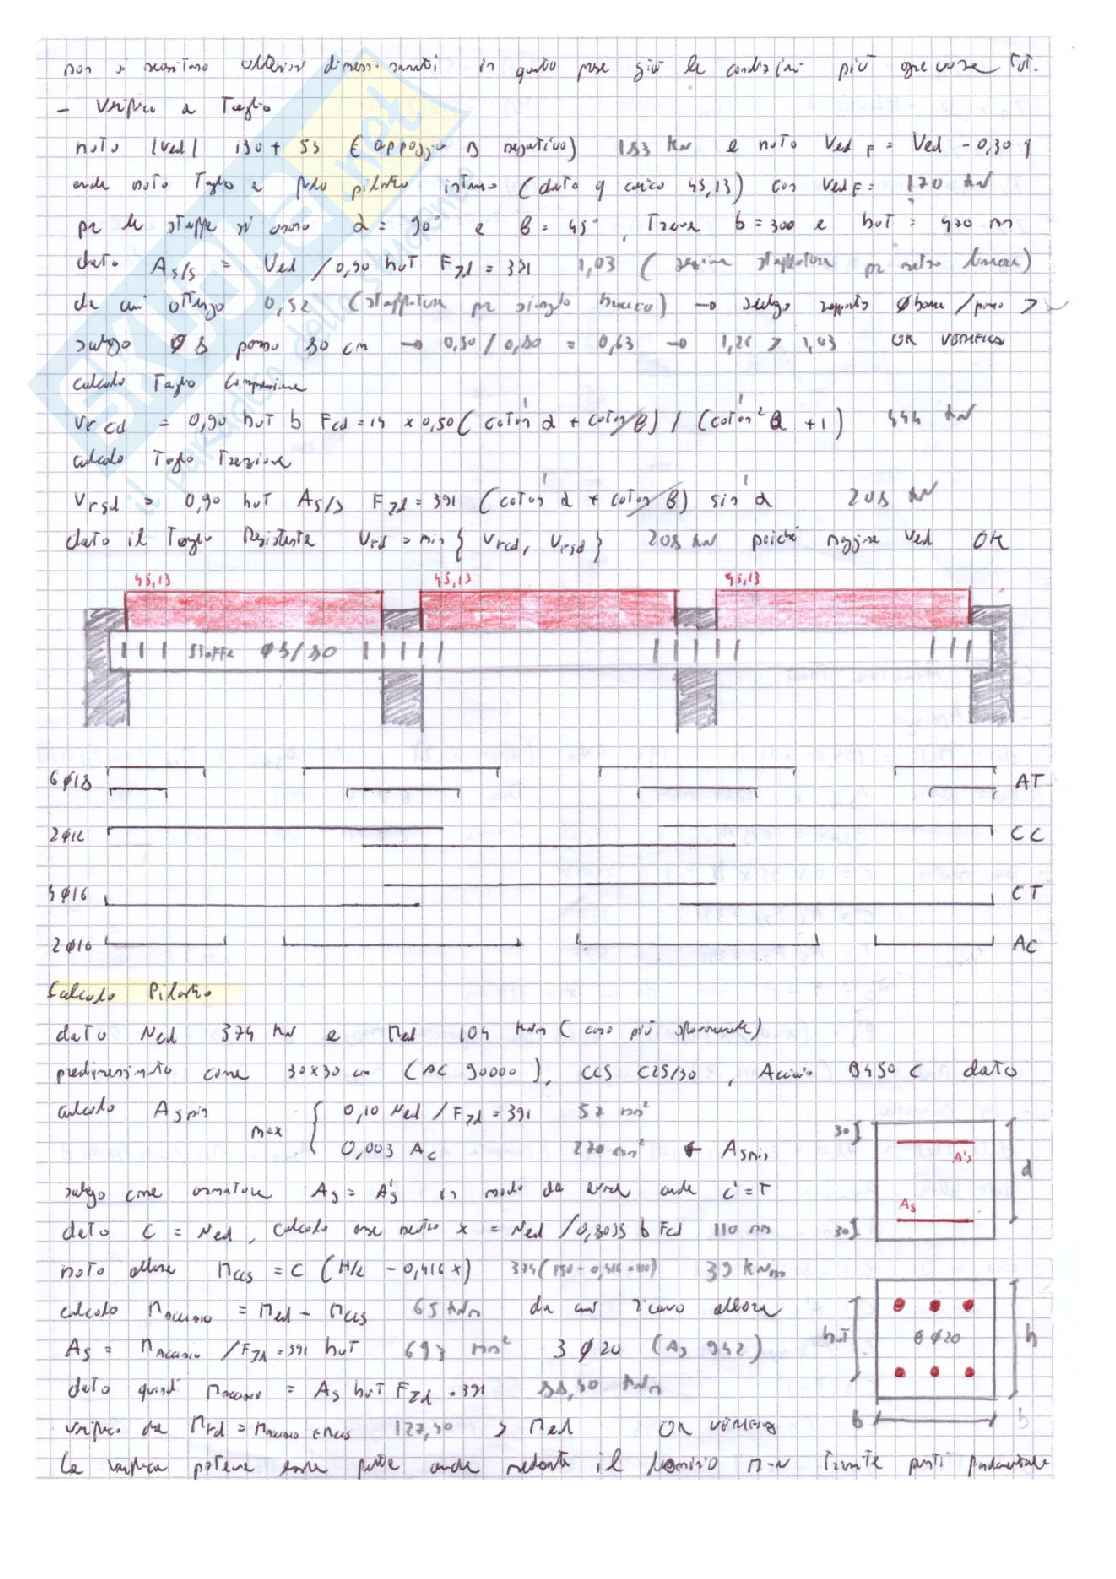 non si necessitano ulteriori dimensionamenti in quanto prese già le condizioni più gravose Tot.
- Verifica a Taglio
noto |Ved| 130 + 53 (appoggio B negativo) 183 kN e noto Ved F = Ved - 0,30 q
anche noto Taglio a filo pilastro interno (dato q carico 45,13) con Ved F = 170 kN
per le staffe si usano α = 90° e θ = 45°, Trave b = 300 e hut = 420 mm
dato As/s = Ved / 0,90 hut Fyd = 391 1,03 (sezione staffatura per metro lineare)
da cui ottengo 0,52 (staffatura per singolo braccio) → scelgo rapporto Ø barra / passo >
scelgo Ø 8 passo 80 cm → 0,50 / 0,80 = 0,63 → 1,26 > 1,03 OK VERIFICA
calcolo Taglio Compressione
Vrcd = 0,90 hut b Fcd = 14 x 0,50 (cotan α + cotan θ) / (cotan² θ + 1) 444 kN
calcolo Taglio Trazione
Vrsd = 0,90 hut As/s Fyd = 391 (cotan α + cotan θ) sin α 208 kN
dato il Taglio Resistente Vrd = min { Vrcd, Vrsd } 208 kN poiché maggiore Ved OK
45,13 45,13 45,13
Staffe Ø8/80
6Ø18 AT
2Ø16 CC
4Ø16 CT
2Ø16 AC
Calcolo Pilastro
dato Ned 374 kN e Med 104 kNm (caso più sfavorevole)
predimensionato come 30x30 cm (AC 90000), CLS C25/30, Acciaio B450C dato
calcolo Asmin
max
0,10 Ned / Fyd = 391 52 mm²
0,003 Ac 270 mm² ← Asmin
30
A's
d
scelgo come armatura As = A's in modo da avere anche C = T
As
30
dato C = Ned, calcolo asse neutro x = Ned / 0,8095 b Fcd 110 mm
noto allora Mcls = C (H/2 - 0,416 x) 374 (150 - 0,416 · 110) 39 kNm
calcolo Macciaio = Med - Mcls 65 kNm da cui ricavo allora
As = Macciaio / Fyd = 391 hut 693 mm² 3 Ø20 (As 942)
hut
6 Ø20
h
dato quindi Macciaio = As hut Fyd = 391 88,40 kNm
verifico che Mrd = Macciaio + Mcls 127,40 > Med OK VERIFICA
b
La verifica poteva essere fatta anche mediante il dominio M-N Tramite punti fondamentali